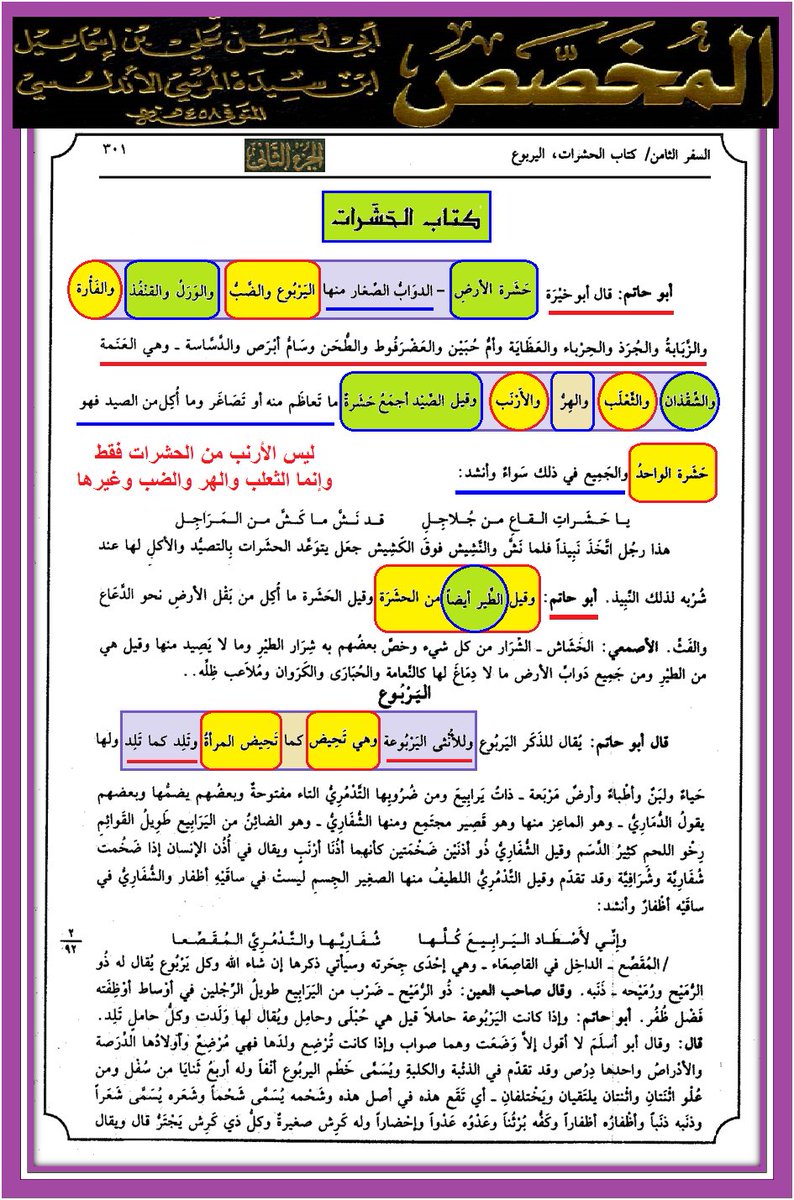 أبي الحسن علي بن إسماعيل
ابن سيدة المرسي الأندلسي
المتوفى ٤٥٨هـ
المخصص
السفر الثامن/ كتاب الحشرات، اليربوع
الجزء الثاني
٣٠١
كتاب الحَشَرات
أبو حاتم: قال أبو خَيْرَة حَشَرة الأرضِ – الدوَابُّ الصِّغار منها اليَرْبُوع والضَّبُّ والوَرَلُ والقنفُذ والفَأْرة
والزَّبابةُ والجُرَذ والحِرْباء والعَظَاية وأمُّ حُبَيْن والعَضْرَفُوط والطُّحَن وسَامُّ أبْرَص والدَّسَّاسة ـ وهي العَنَمة
والشُّقْذان والثَّعْلَب والهِرُّ والأَرْنَب وقيل الصَّيْد أجمَعُ حَشَرةٌ ما تَعاظَم منه أو تَصَاغَر وما أُكِل من الصيد فهو
حَشَرة الواحدُ والجَمِيع في ذلك سَواءٌ وأنشد:
ليس الأرنب من الحشرات فقط
وإنما الثعلب والهر والضب وغيرها
يـا حَـشَـراتِ الـقـاعِ مـن جُـلاجِـلِ قـد نَـشَّ مـا كَـشَّ مـن الـمَـرَاجِـل
هذا رجُل اتَّخَذ نَبِيذاً فلما نَشَّ والنَّشِيش فوقَ الكَشِيش جعَل يتوَعَّد الحشَرات بِالتصيُّد والأكلِ لها عند
شُرْبه لذلك النَّبِيذ. أبو حاتم: وقيل الطَّير أيضاً من الحشَرَة وقيل الحَشَرة ما أُكِل من بَقْل الأرضِ نحو الدُّعَاع
والفَثِّ. الأصمعي: الخَشَاش ـ الشَّرَار من كل شيء وخصَّ بعضُهم به شِرَار الطيْرِ وما لا يَصِيد منها وقيل هي
من الطيْرِ ومن جَمِيع دَوابِّ الأرض ما لا دِمَاغَ لها كالنَّعامة والحُبَارَى والكَرَوان ومُلاَعب ظِلِّه..
اليَرْبُوع
قال أبو حاتم: يُقال للذَكَر اليَرْبُوع وللأُنْثى اليَرْبُوعة وهي تَحِيض كما تَحِيض المرأةُ وتَلِد كما تَلِد ولها
حَياءٌ ولبَنٌ وأطْباءٌ وأرضٌ مَرْبَعة ـ ذاتُ يَرابِيعَ ومن ضُروبها التَّدْمُرِيُّ التاء مفتوحةٌ وبعضُهم يضمُّها وبعضهم
يقولُ الدُّمَارِيُّ ـ وهو الماعِز منها وهو قَصِير مجتمِع ومنها الشُّفَارِيُّ ـ وهو الضائِنُ من اليَرَابيع طَوِيلُ القَوائِمِ
رِخْو اللحمِ كثِيرُ الدَّسَم وقيل الشُّفارِيُّ ذُو أذنَيْنِ ضَخْمَتين كأنهما أُذُنَا أرْنَبٍ ويقال في أُذُن الإنسان إذا ضَخُمت
شُفَارِيَّة وشُرَافِيَّة وقد تقدّم وقيل التَّدْمُرِيُّ اللطيفُ منها الصغِير الجِسمِ ليستْ في ساقَيْهِ أظْفار والشُّفارِيُّ في
ساقَيْه أظفارٌ وأنشد:
وإنِّـي لأَصْـطَـاد الـيَـرابِـيـعَ كُـلَّـهـا شُـفـارِيَّـهـا والـتَّـدْمُـرِيَّ الـمُـقَـصِّـعـا
٢
٩٢
/المُقَصِّع ـ الداخِل في القاصِعاء ـ وهي إحْدَى جِحَرته وسيأتي ذكرها إن شاء الله وكل يَرْبُوع يُقال له ذُو
الرُّمَيْح ورُمَيْحه ـ ذَنَبه. وقال صاحب العين: ذُو الرُّمَيْح ـ ضَرْب من اليَرَابِيع طويلُ الرِّجْلين في أوْساط أوْظِفَته
فَضْل ظُفُر. أبو حاتم: وإذا كانت اليَرْبُوعة حاملاً قيل هي حُبْلَى وحامِل ويُقال لها وَلَدت وكلُّ حاملٍ تَلِد.
قال: وقال أبو أسلَمَ لا أقول إلاَّ وَضَعَت وهما صواب وإذا كانت تُرْضِع ولدَها فهي مُرْضِعٌ وأوْلادُها الدِّرَصة
والأدْرَاصُ واحدها دِرْص وقد تقدم في الذئبة والكلبةِ ويُسَمَّى خَطْم اليربوع أنْفاً وله أربعُ ثَنَايا من سُفْل ومن
عُلْوِ اثنَتانِ واثنتان يلتَقِيان ويَخْتلِفانِ ـ أي تَقَع هذه في أصل هذه وشَحْمه يُسَمَّى شَحْماً وشعَره يُسَمَّى شَعَراً
وذنَبه ذَنَباً وأظْفارُه أظفاراً وكَفُّه بُرْثُناً وعَدْوُه عَدْواً وإحْضاراً وله كَرِش صغيرةٌ وكلُّ ذي كَرِش يَجْتَرُّ قال ويقال